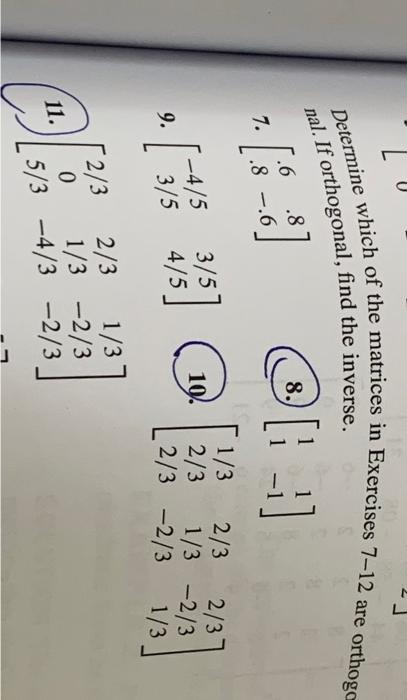 Determine which of the matrices in Exercises 7–12 are orthogo
nal. If orthogonal, find the inverse.
7. [ .6 .8
.8 -.6 ]
8. [ 1 1
1 -1 ]
9. [ -4/5 3/5
3/5 4/5 ]
10. [ 1/3 2/3 2/3
2/3 1/3 -2/3
2/3 -2/3 1/3 ]
11. [ 2/3 2/3 1/3
0 1/3 -2/3
5/3 -4/3 -2/3 ]